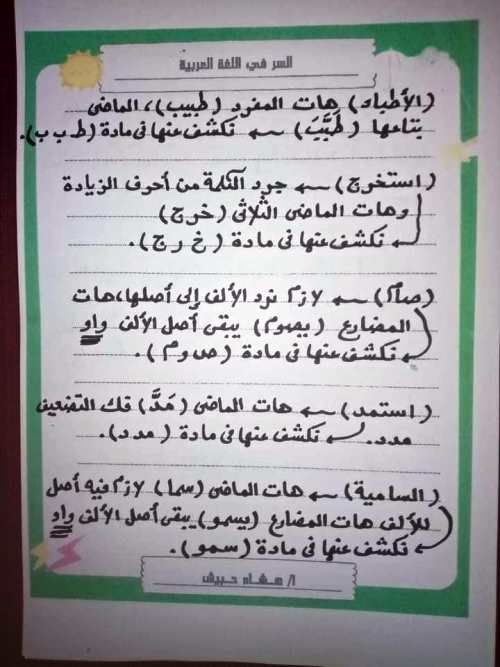 السر في اللغة العربية
(الأطباء) هات المفرد (طبيب)، الماضى
بتاعها (طَبَّبَ) ← نكشف عنها فى مادة (ط ب ب).
(استخرج) ← جرد الكلمة من أحرف الزيادة
وهات الماضى الثلاثى (خرج)
نكشف عنها فى مادة (خ ر ج).
(صام) ← لازم نرد الألف إلى أصلها، هات
المضارع (يصوم) يبقى أصل الألف واو
نكشف عنها فى مادة (ص و م).
(استمد) ← هات الماضى (مَدَّ) فك التضعيف
مدد. ← نكشف عنها فى مادة (مدد).
(السامية) ← هات الماضى (سما) لازم فيه أصل
للألف هات المضارع (يسمو) يبقى أصل الألف واو
نكشف عنها فى مادة (سمو).
أ/ هشام حبيش